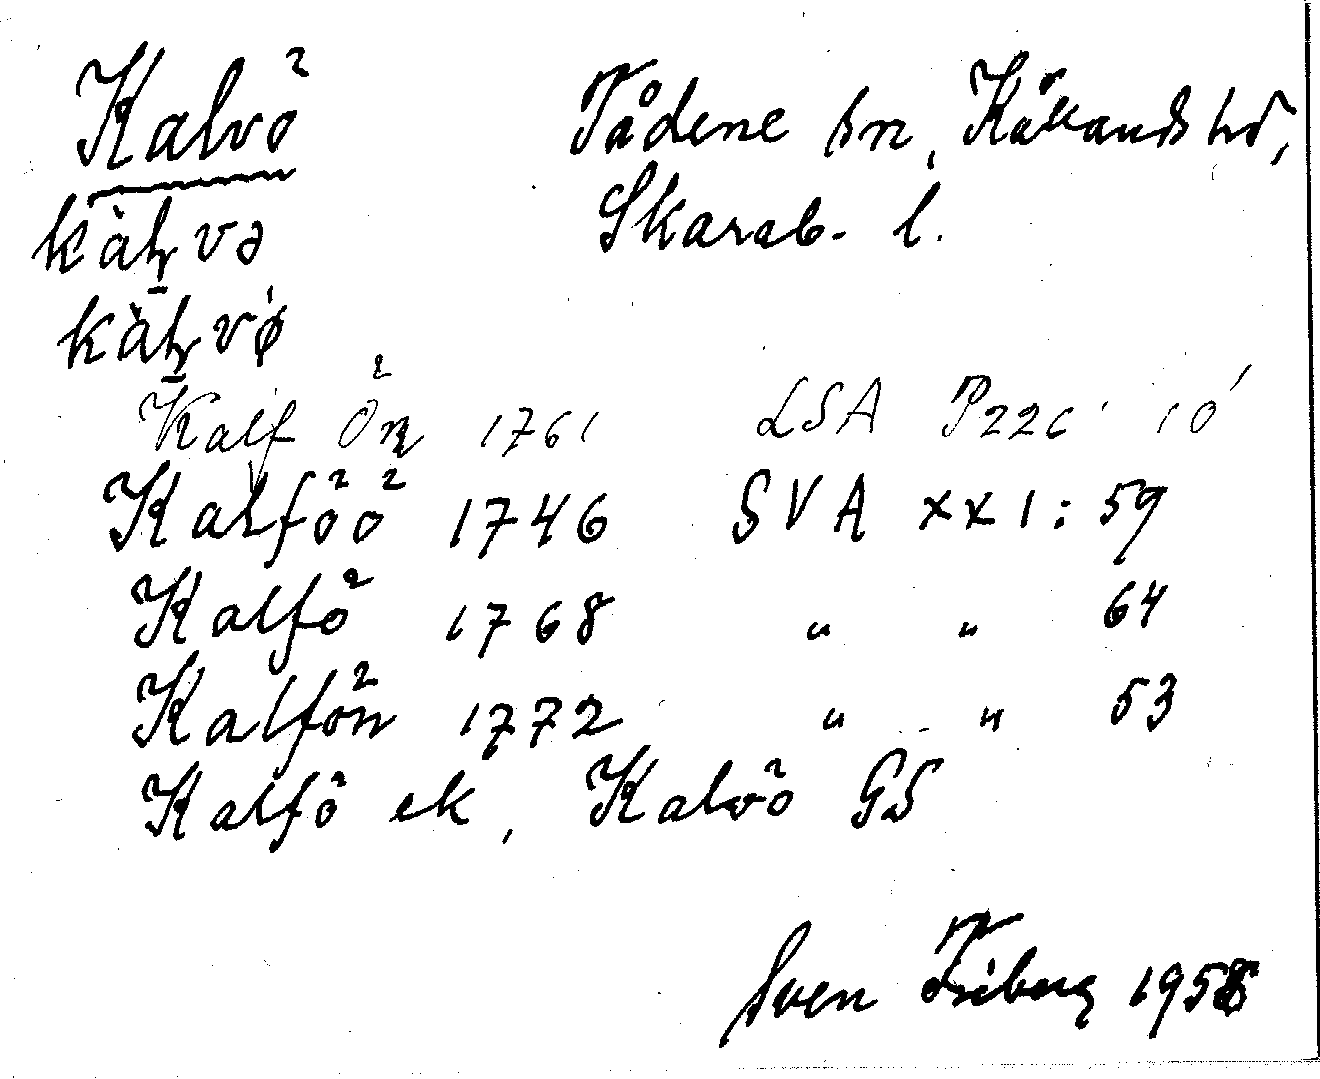 Kalvö Tådene sn, Kållands hd,
Skarab. l.
kàḷvə
kàḷvø
Kalf Ön 1761 LSA P226: 10
Kalföö 1746 SVA XXI: 59
Kalfö 1768 " " 64
Kalfön 1772 " " 53
Kalfö ek, Kalvö GS
Sven Friberg